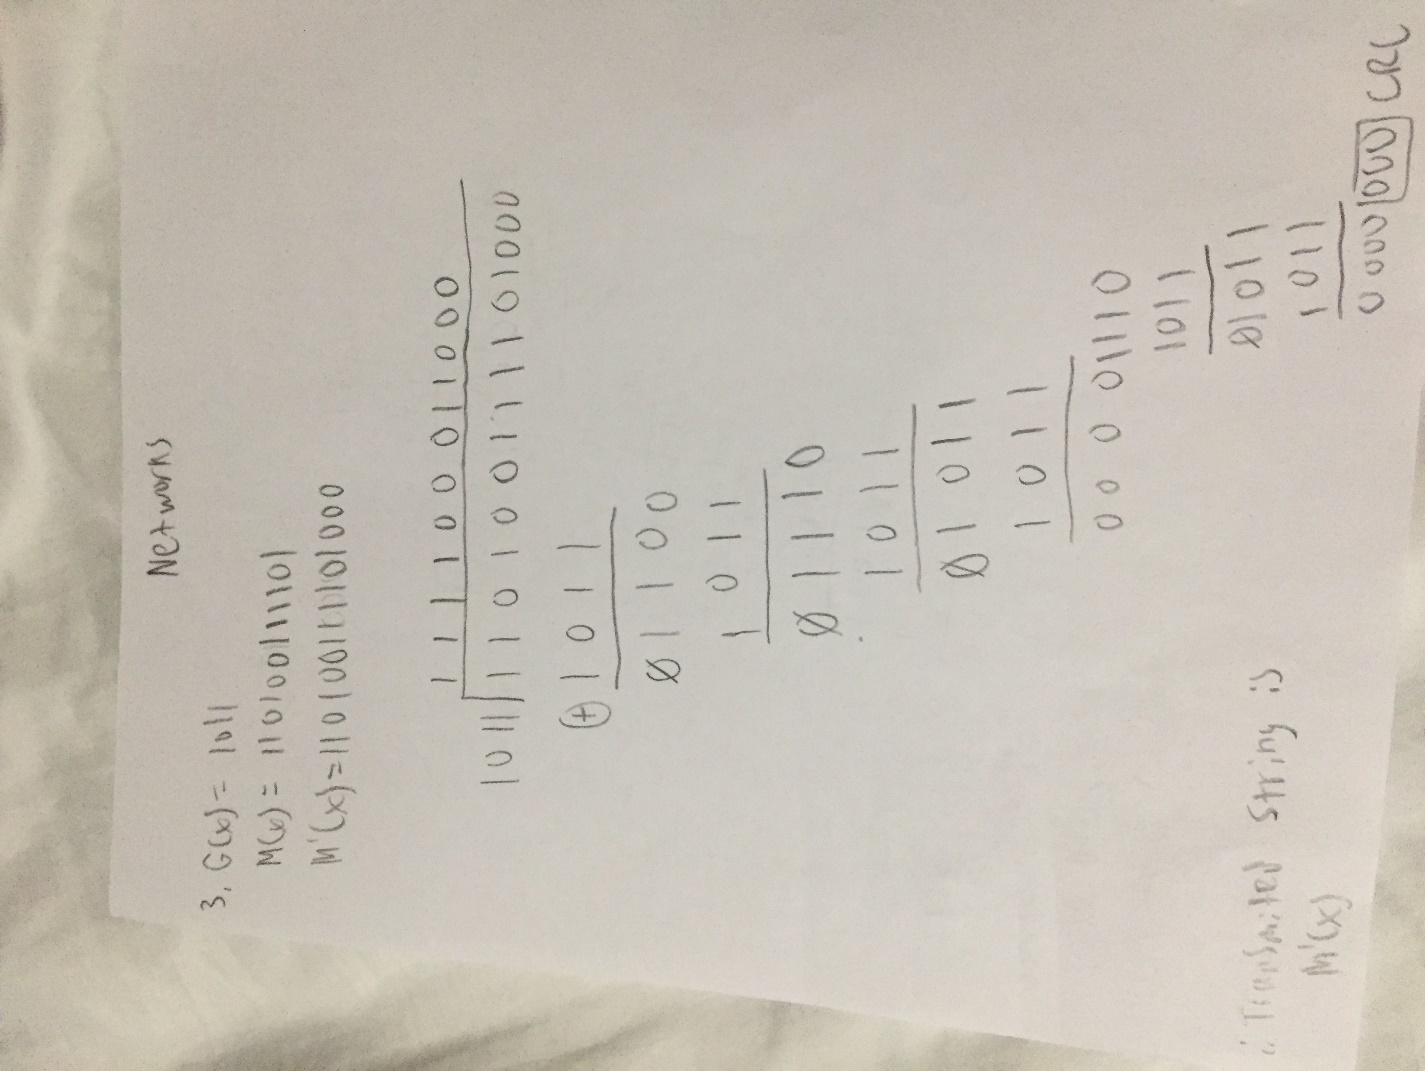 Networks
3. G(x)= 1011
M(x)= 110100111101
M'(x)= 110100111101000
1 1 1 1 0 0 0 1 1 0 0 0
1011 1 1 0 1 0 0 1 1 1 1 0 1 0 0 0
⊕ 1 0 1 1
0 1 1 0 0
1 0 1 1
0 1 1 1 0
1 0 1 1
0 1 0 1 1
1 0 1 1
0 0 0 0 1110
1011
01011
1011
0000 000 CRC
∴ Transmited string is
M'(x)